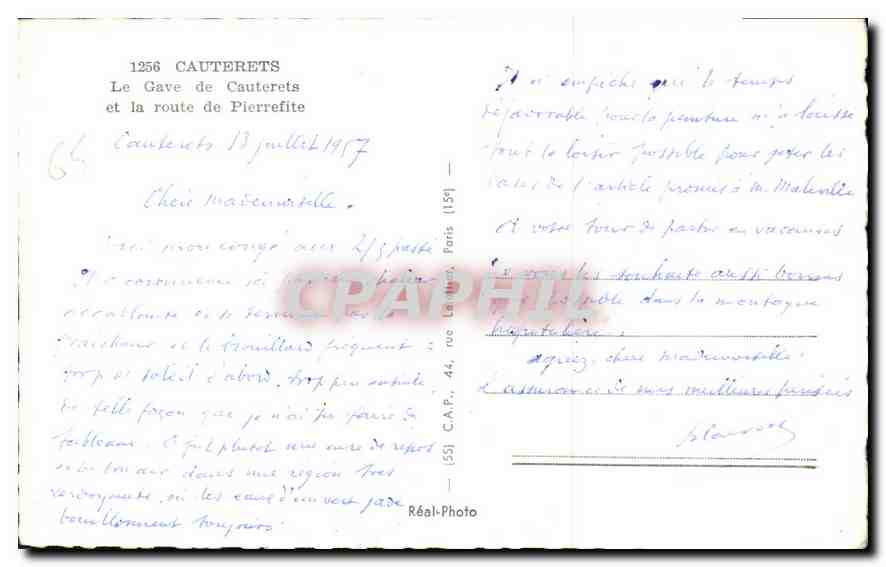 1256 CAUTERETS
Le Gave de Cauterets
et la route de Pierrefite
64
Cauterets 13 juillet 1957
Chère Mademoiselle.
mon congé aux 2/3 passé
Il a commencé ici
accablante et se termine
fraîcheur et le brouillard fréquent :
trop de soleil d'abord, trop peu ensuite
De telle façon que je n'ai pu faire de
tableaux. C'est plutôt une cure de repos
dans une région très
verdoyante, où les eaux d'un vert jade
bouillonnent toujours.
Il n'empêche que le temps
défavorable pour la peinture m'a laissé
tout le loisir possible pour jeter les
bases de l'article promis à M. Maleville
A votre tour de partir en vacances
Je vous les souhaite aussi bonnes
que possible dans la montagne
hospitalière.
Agréez, chère Mademoiselle,
l'assurance de mes meilleures pensées
(55) C.A.P., 44, rue Paris (15e)
Réal-Photo
CPAPHIL